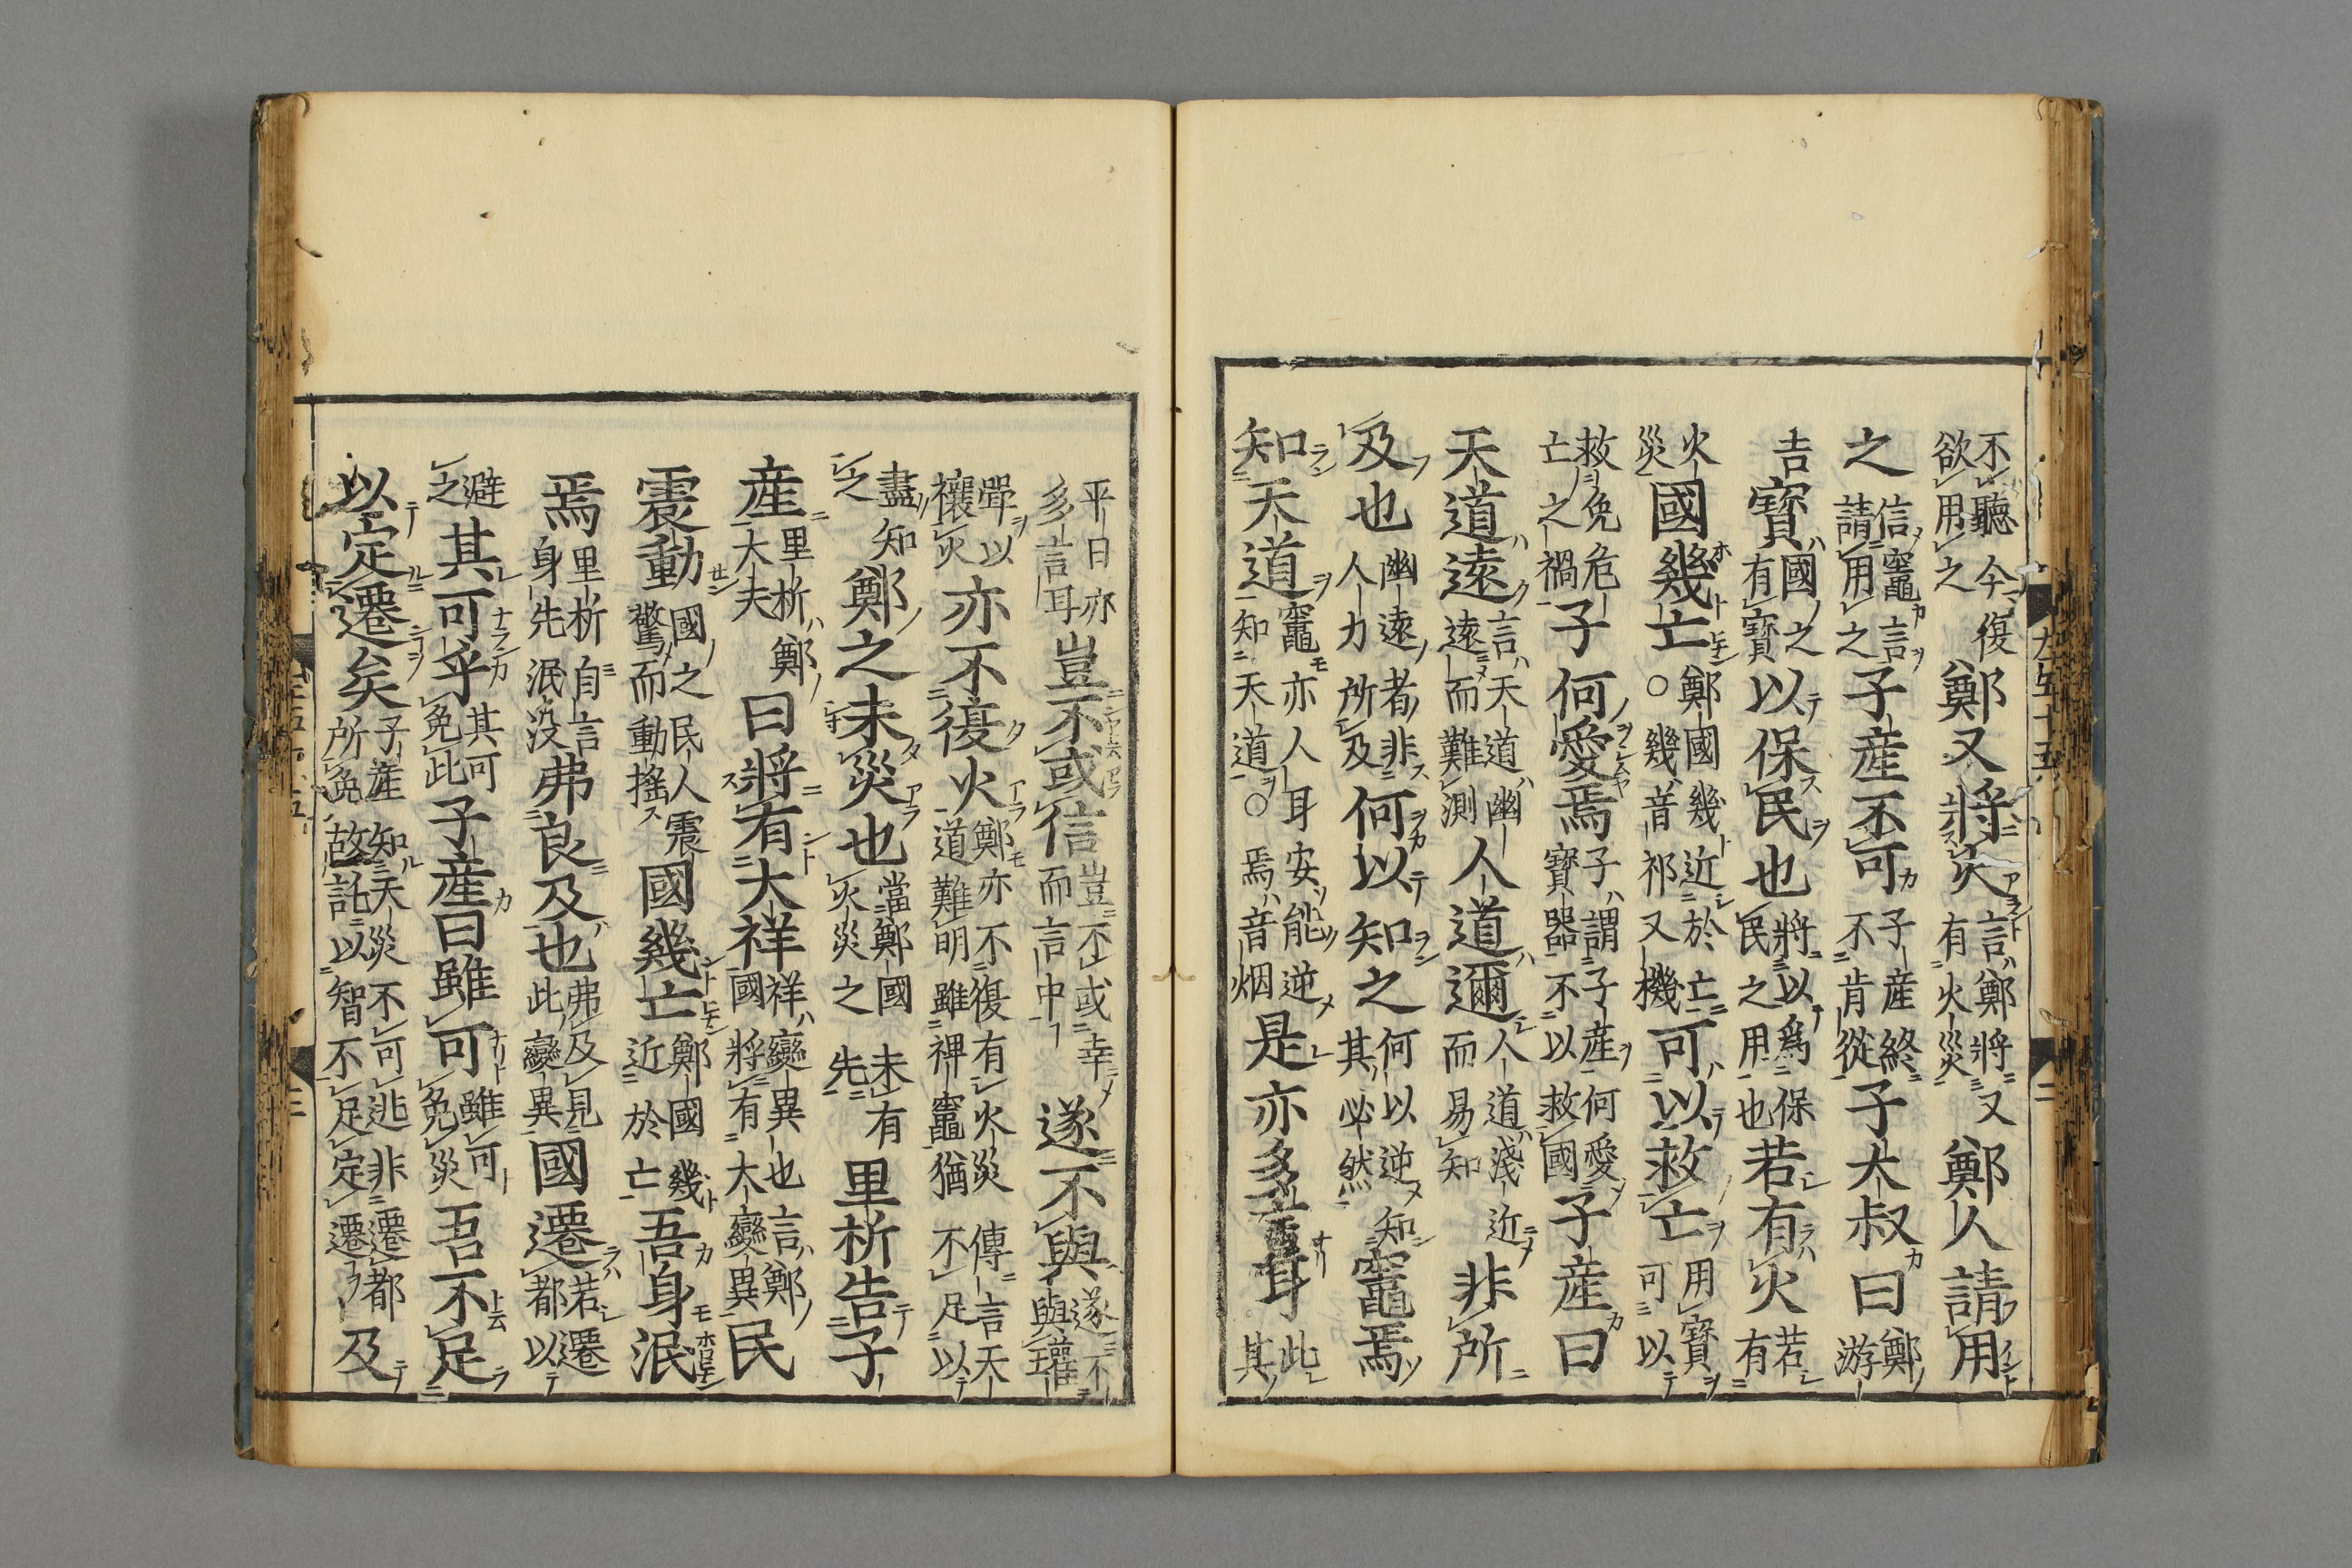 不聽今復欲用之鄭又將火言鄭將又有火災鄭人請用
之信竈言請用之子産不可子産終不肯從子大叔曰鄭游
吉寳國之有寶以保民也將以爲保民之用也若有火若有
火災國幾亡鄭國幾近於亡○幾音祁又機可以救亡用寶可以
救免危亡之禍子何愛焉子謂子産何愛寶器不以救國子産曰
天道遠言天道幽遠而難測人道邇人道淺近而易知非所
及也幽遠者非人力所及何以知之何以逆知其必然竈焉
知天道竈亦人耳安能逆知天道○焉音烟是亦多言耳此其
平日亦多言耳豈不或信豈不或幸而言中遂不與遂不與瓘
斝以禳火亦不復火鄭亦不復有火災傳言天道難明雖裨竈猶不足以
盡知之鄭之未災也當鄭國未有火災之先里析告子
産里析鄭大夫曰將有大祥祥變異也言鄭國將有大變異民
震動國之民人震驚而動搖國幾亡鄭國幾近於亡吾身泯
焉里析自言身先泯没弗良及也弗及見此變異國遷若遷都以
避之其可乎其可免此子産曰雖可雖可免災吾不足
以定遷矣子産知天災不可逃非遷都所免故託以智不足定遷及